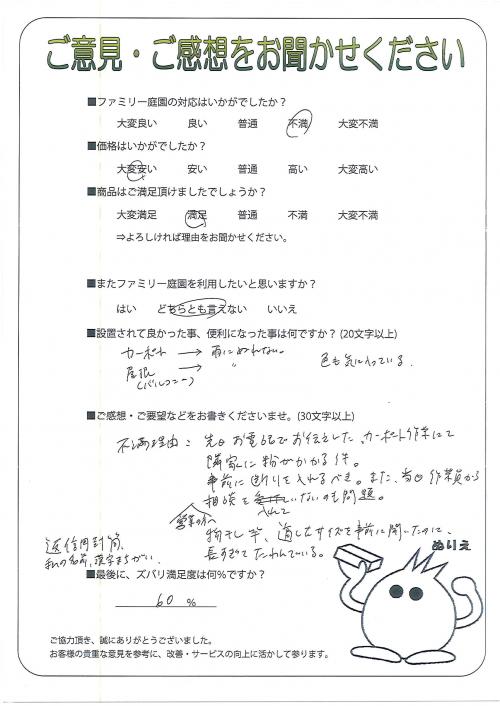 ご意見・ご感想をお聞かせください
■ファミリー庭園の対応はいかがでしたか？
大変良い　良い　普通　不満　大変不満
■価格はいかがでしたか？
大変安い　安い　普通　高い　大変高い
■商品はご満足頂けましたでしょうか？
大変満足　満足　普通　不満　大変不満
⇒よろしければ理由をお聞かせください。
■またファミリー庭園を利用したいと思いますか？
はい　どちらとも言えない　いいえ
■設置されて良かった事、便利になった事は何ですか？(20文字以上)
カーポート → 雨にぬれない。
屋根 → 〃　色も気に入っている.
(バルコニー)
■ご感想・ご要望などをお書きくださいませ。(30文字以上)
不満理由： 先日お電話でお伝えした、カーポート作業にて
隣家に粉がかかる件。
事前に断りを入れるべき。また、当日作業員から
相談を入れていないのも問題。
営業の方へ
物干し竿、適したサイズを事前に聞いたのに、
長すぎてたわんでいる。
返信用封筒、
私の名前、漢字まちがい。
ぬりえ
■最後に、ズバリ満足度は何%ですか？
60 %
ご協力頂き、誠にありがとうございました。
お客様の貴重な意見を参考に、改善・サービスの向上に活かして参ります。